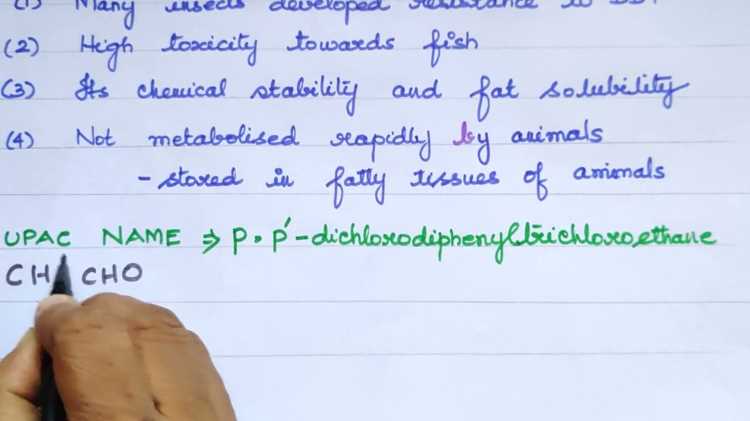 (1) Many insects developed resistance to DDT
(2) High toxicity towards fish
(3) Its chemical stability and fat solubility
(4) Not metabolised rapidly by animals
- stored in fatty tissues of animals
UPAC NAME ⇒ P.P'-dichlorodiphenyltrichloroethane
CH CHO